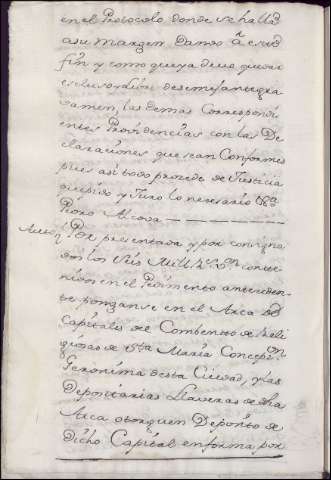 en el Protocolo donde se halla
a su margen Dando a este
fin y como queya deve quedar
escluso y libre de semejante gra
vamen, las demas Correspondi
entes Providencias con las De
claraciones que sean Conformes
pues asi todo procede de Justicia
que pido y Juro lo necesario
Pedro Alcova
Auto Por presentada y por consigna
dos los Seis Mill rs. vn. conte
nidos en el Pedimento anteceden
te ponganse en el Arca de
Capitales del Combento de Reli
giosas de Sta Maria Concepcion
Geronima desta Ciudad, y las
Depositarias Llaveras de dha
Arca otorguen Deposito de
dicho Capital en forma por